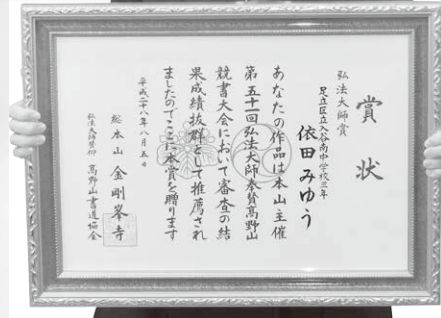 賞状
弘法大師賞
足立区立入谷南中学校三年
依田みゆう
あなたの作品は本山主催
第五十一回弘法大師奉賛高野山
競書大会において審査の結
果成績抜群として推薦され
ましたのでここに本賞を贈ります
平成二十八年八月五日
総本山 金剛峯寺
高野山書道協会